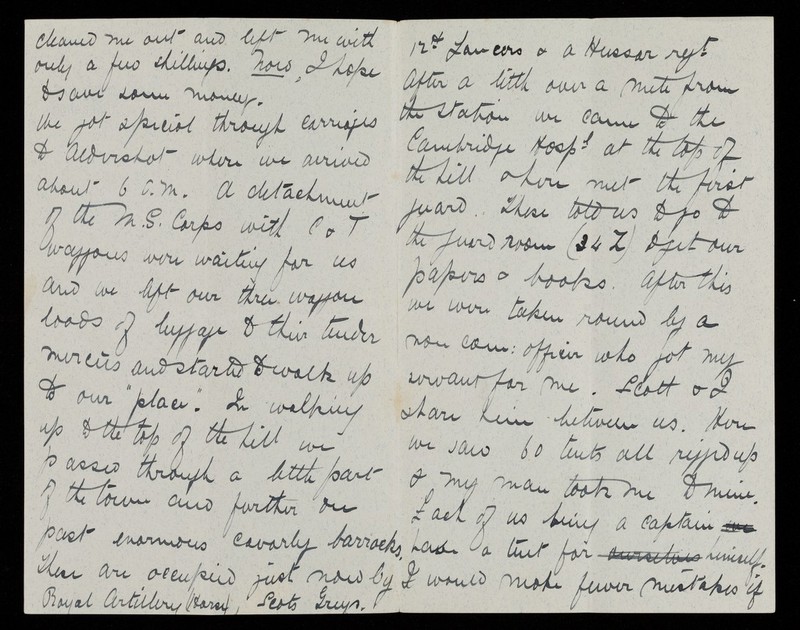 cleared me out and left me with
only a few shillings. Now, I hope
to save some money.
We got special through carriages
to Aldershot where we arrived
about 6 a.m. A detachment
of the M.S. Corps with C & T
waggons were waiting for us
and we left our three waggon
loads of luggage to their tender
mercies and started to walk up
to our "place". In walking
up to the top of the hill we
passed through a little part
of the town and further on
past enormous cavarly barracks.
These are occupied just now by
Royal Artillery (Horse), Scots Greys.
12th Lancers & a Hussar regt.
After a little over a mile from
the station we came to the
Cambridge Hospl at the top of
the hill & here met the first
guard. These told us to go to
the guard room (34 Z) to get our
papers & books. After this
we were taken round by a
non com: officer who got my
servant for me. Scott & I
share him between us. Here
we saw 60 tents all rigged up
& my man took me to mine.
Each of us being a captain we
have a tent for ourselves himself.
I would make fewer mistakes if